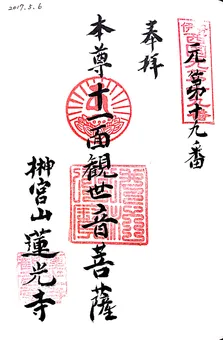 2017.5.6
第十九番
奉拝
本尊十一面観世音菩薩
榊宮山 蓮光寺